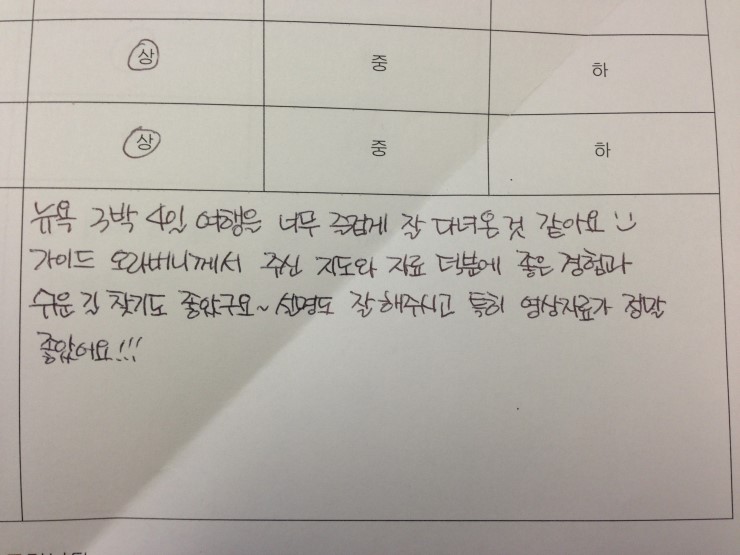 상 중 하
상 중 하
뉴욕 3박 4일 여행을 너무 즐겁게 잘 다녀온 것 같아요
가이드 오라버니께서 주신 지도와 자료 덕분에 좋은 경험과
쉬운 길 찾기도 좋았구요~ 설명도 잘 해주시고 특히 영상자료가 정말
좋았어요!!!